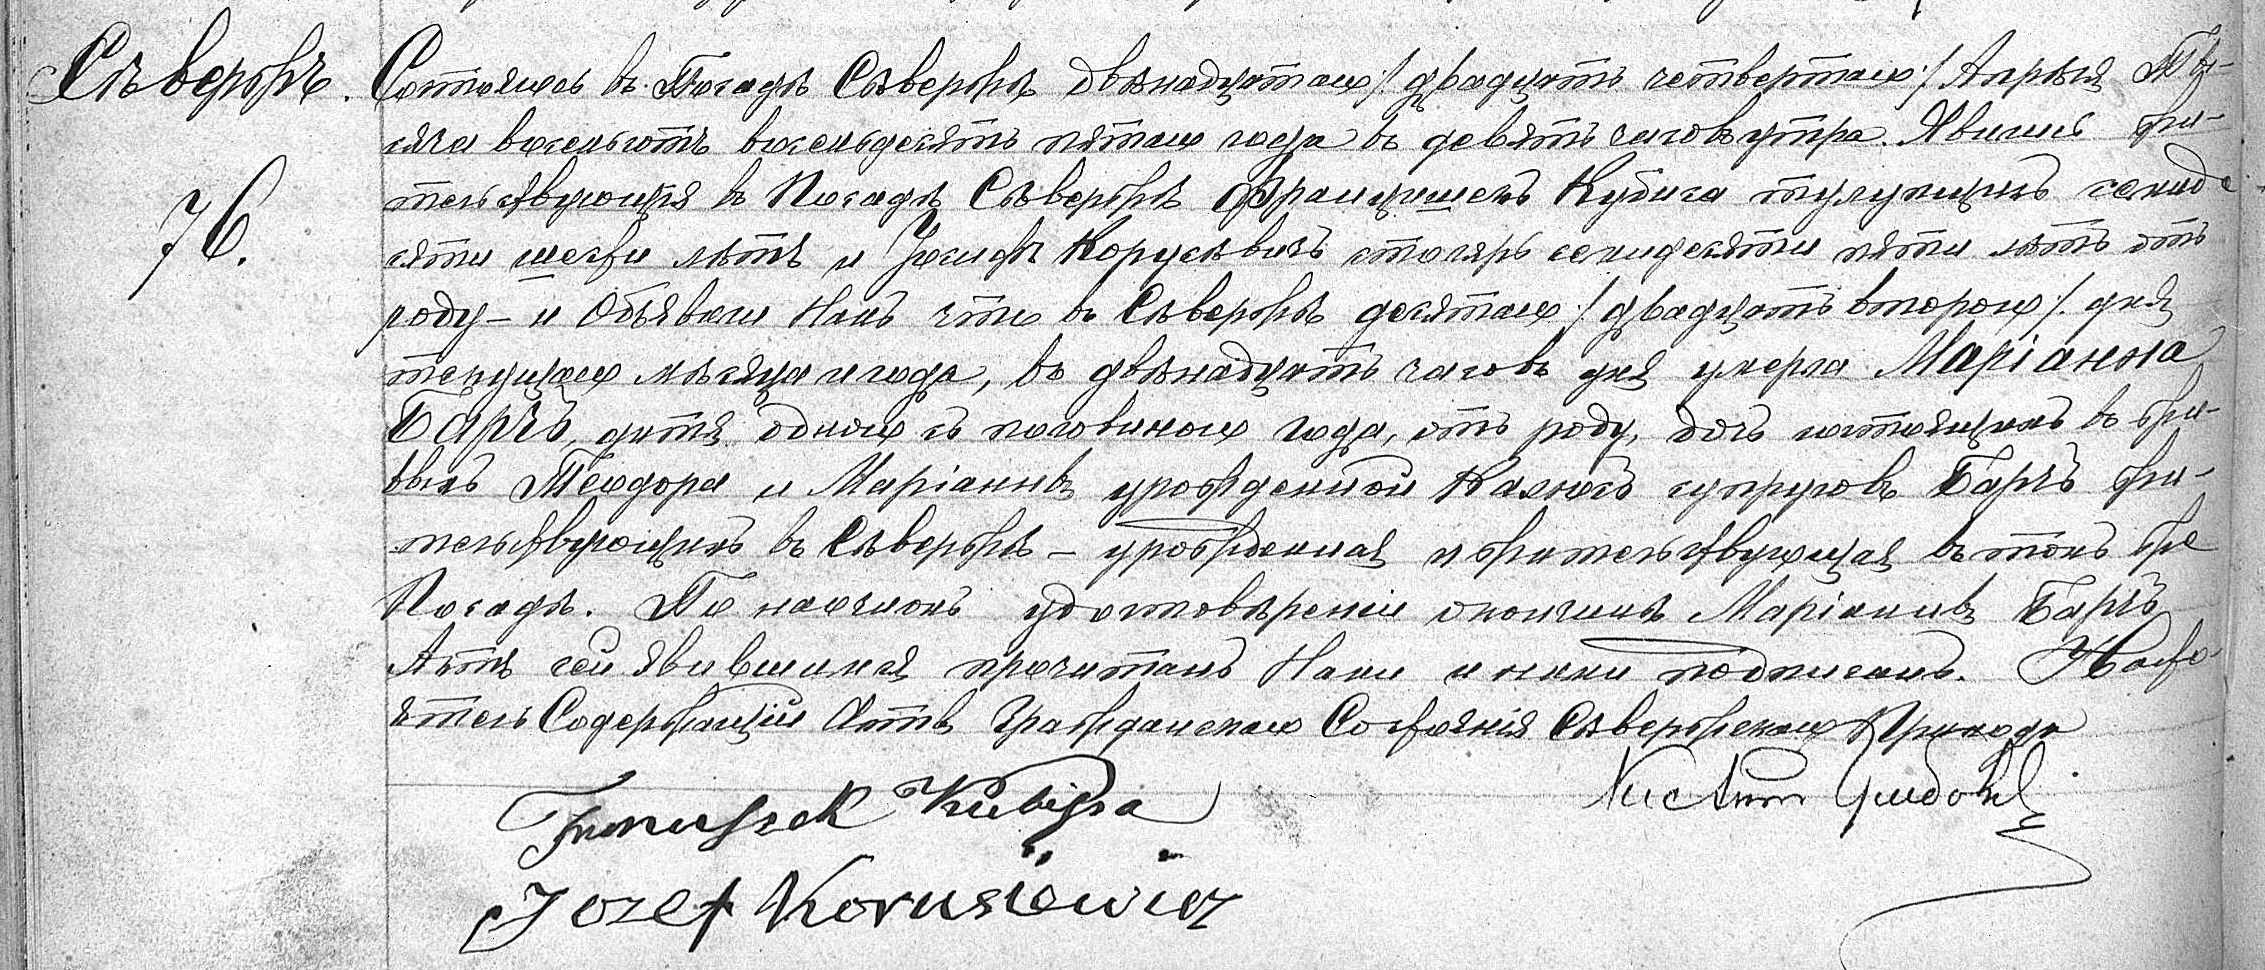 Сѣвержъ.
76.
Состоялось въ Посадѣ Сѣвержѣ двѣнадцатаго /двадцать четвертаго/ Апрѣля Ты-
сяча восемьсотъ восемьдесятъ пятаго года въ девять часовъ утра. Явились жи-
тельствующія въ Посадѣ Сѣвержѣ Францишекъ Кубица тулупщикъ семиде
сяти шести лѣтъ и Іосифъ Корусѣвичъ столяръ семидесяти пяти лѣтъ отъ
роду – и Объявили Намъ что въ Сѣвержѣ десятаго /двадцать второго/ дня
текущаго мѣсяца и года, въ двѣнадцать часовъ дня умерла Маріанна
Барчъ, дитя одного съ половиною года, отъ роду, дочь состоящихъ въ жи-
выхъ Теодора и Маріанны урожденной супруговъ Барчъ жи-
тельствующихъ въ Сѣвержѣ – урожденная и жительствующая въ томъ же
Посадѣ. По наочномъ удостовѣреніи о кончинѣ Маріанны Барчъ
Актъ сей явившимся прочитанъ Нами и ними подписанъ. Насто-
ятель Содержащій Актъ Гражданскаго Состоянія Сѣвержскаго Прихода
Franciszek Kubica
Józef Korusiewicz